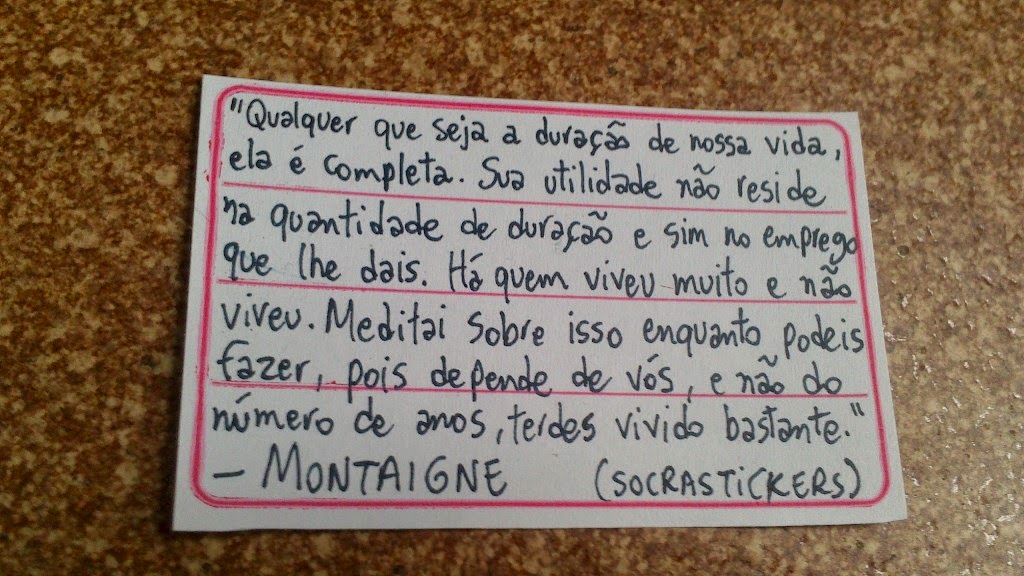 "Qualquer que seja a duração de nossa vida,
ela é completa. Sua utilidade não reside
na quantidade de duração e sim no emprego
que lhe dais. Há quem viveu muito e não
viveu. Meditai sobre isso enquanto podeis
fazer, pois depende de vós, e não do
número de anos, terdes vivido bastante."
— MONTAIGNE (SOCRASTICKERS)